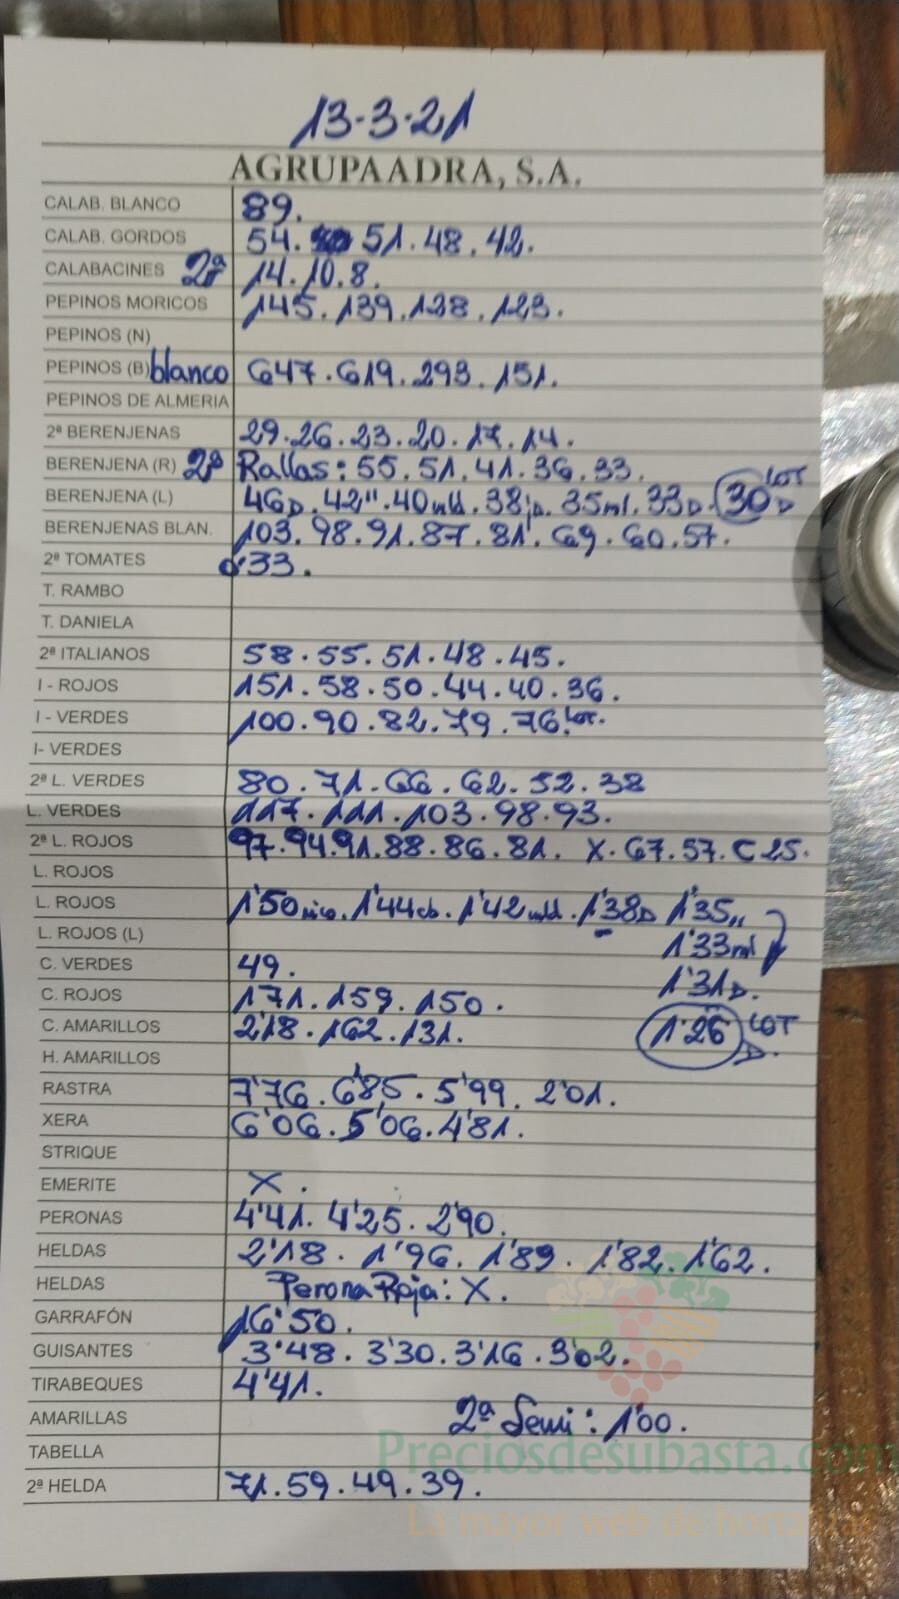 13-3-21
AGRUPAADRA, S.A.
CALAB. BLANCO 89.
CALAB. GORDOS 54. 51. 48. 42.
CALABACINES 2ª 14. 10. 8.
PEPINOS MORICOS 145. 139. 128. 123.
PEPINOS (N)
PEPINOS (B) blanco 647. 619. 293. 151.
PEPINOS DE ALMERIA
2ª BERENJENAS 29. 26. 23. 20. 17. 14.
BERENJENA (R) 2ª Rallas: 55. 51. 41. 36. 33.
BERENJENA (L) 46D. 42". 40mld. 38jp. 35ml. 33D. 30D LOT
BERENJENAS BLAN. 103. 98. 91. 87. 81. 69. 60. 57.
2ª TOMATES 0'33.
T. RAMBO
T. DANIELA
2ª ITALIANOS 58. 55. 51. 48. 45.
I - ROJOS 151. 58. 50. 44. 40. 36.
I - VERDES 100. 90. 82. 79. 76. LOT.
I- VERDES
2ª L. VERDES 80. 71. 66. 62. 52. 38
L. VERDES 117. 111. 103. 98. 93.
2ª L. ROJOS 97. 94. 91. 88. 86. 81. X. 67. 57. C 25.
L. ROJOS
L. ROJOS 1'50 . 1'44cb. 1'42mld. 1'38D 1'35"
L. ROJOS (L) 1'33ml
C. VERDES 49. 1'31D.
C. ROJOS 171. 159. 150.
C. AMARILLOS 2'18. 162. 131. 1'26 LOT D.
H. AMARILLOS
RASTRA 7'76. 6'85. 5'99. 2'01.
XERA 6'06. 5'06. 4'81.
STRIQUE
EMERITE X.
PERONAS 4'41. 4'25. 2'90.
HELDAS 2'18. 1'96. 1'89. 1'82. 1'62.
HELDAS Perona Roja: X.
GARRAFÓN 16'50.
GUISANTES 3'48. 3'30. 3'16. 3'02.
TIRABEQUES 4'41.
AMARILLAS 2ª Semi: 1'00.
TABELLA
2ª HELDA 71. 59. 49. 39.
Preciosdesubasta.com
La mayor web de hortalizas